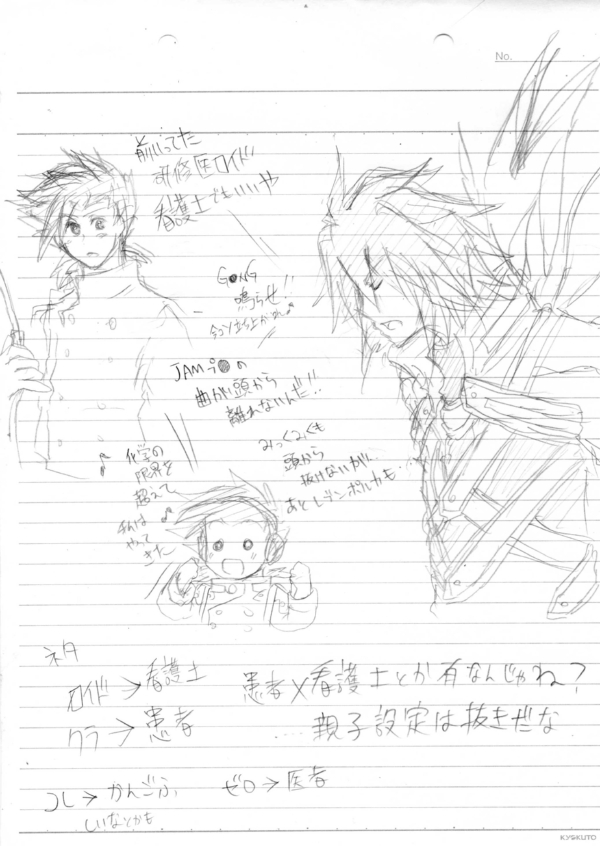 No.
前いってた
研修医ロイド
看護士でもいいや
G●NG
鳴らせ!!
今ソ立ち上がれ♪
JAMプ●の
曲が頭から
離れないんだ!!‥
みっくみくも
頭から
抜けないがに‥
あとレデンポルカも‥
♪ 化学の
限界を
超えて
私は
やって
きたー♪
ネタ
ロイド→看護士
クラ→患者
患者×看護士とか有なんじゃね?
‥‥親子設定は抜きだな
コレ→かんごふ ゼロ→医者
しいなとかも
KYOKUTO